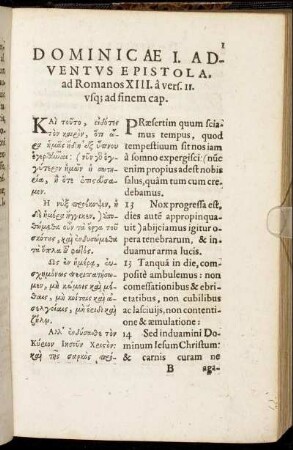 1
DOMINICAE I. AD-
VENTVS EPISTOLA.
ad Romanos XIII. à vers. 11.
vsq; ad finem cap.
Καὶ τοῦτο, εἰδότες
τὸν καιρὸν, ὅτι ὥρα
ἡμᾶς ἤδη ἐξ ὕπνου
ἐγερθῆναι: (νῦν γὸ ἐγ-
γύτερον ἡμῶν ἡ σωτη-
ρία, ἢ ὅτε ἐπιςεύσα-
μεν.
Ἡ νὺξ προέκοψεν, ἡ
δὲ ἡμέρα ἤγγικεν.) ἀπο-
θώμεθα οὖν τὰ ἔργα τοῦ
σκότους, καὶ ἐνδυσώμεθα
τὰ ὅπλα τοῦ φωτός.
Ὡς ἐν ἡμέρᾳ, εὐ-
σχημόνως περιπατήσω-
μεν, μὴ κώμοις καὶ μέ-
θαις, μὴ κοίταις καὶ ἀ-
σελγείαις, μὴ ἔριδι καὶ
ζήλῳ.
Ἀλλ' ἐνδύσασθε τὸν
Κύριον Ἰησοῦν Χριςὸν:
καὶ τῆς σαρκὸς πρό-
PRæsertim quum scia-
mus tempus, quod
tempestiuum sit nos iam
à somno expergisci: (nūc
enim propius adest nobis
salus, quàm tum cum cre-
debamus.
13 Nox progressa est,
dies autē appropinqua-
uit) abijciamus igitur o
pera tenebrarum, & in-
duamur arma lucis.
13 Tanquā in die, com-
positè ambulemus: non
comessationibus & ebri-
etatibus, non cubilibus
ac lasciuijs, non contenti-
one & æmulatione:
14 Sed induamini Do-
minum Iesum Christum:
& carnis curam ne
B aga-